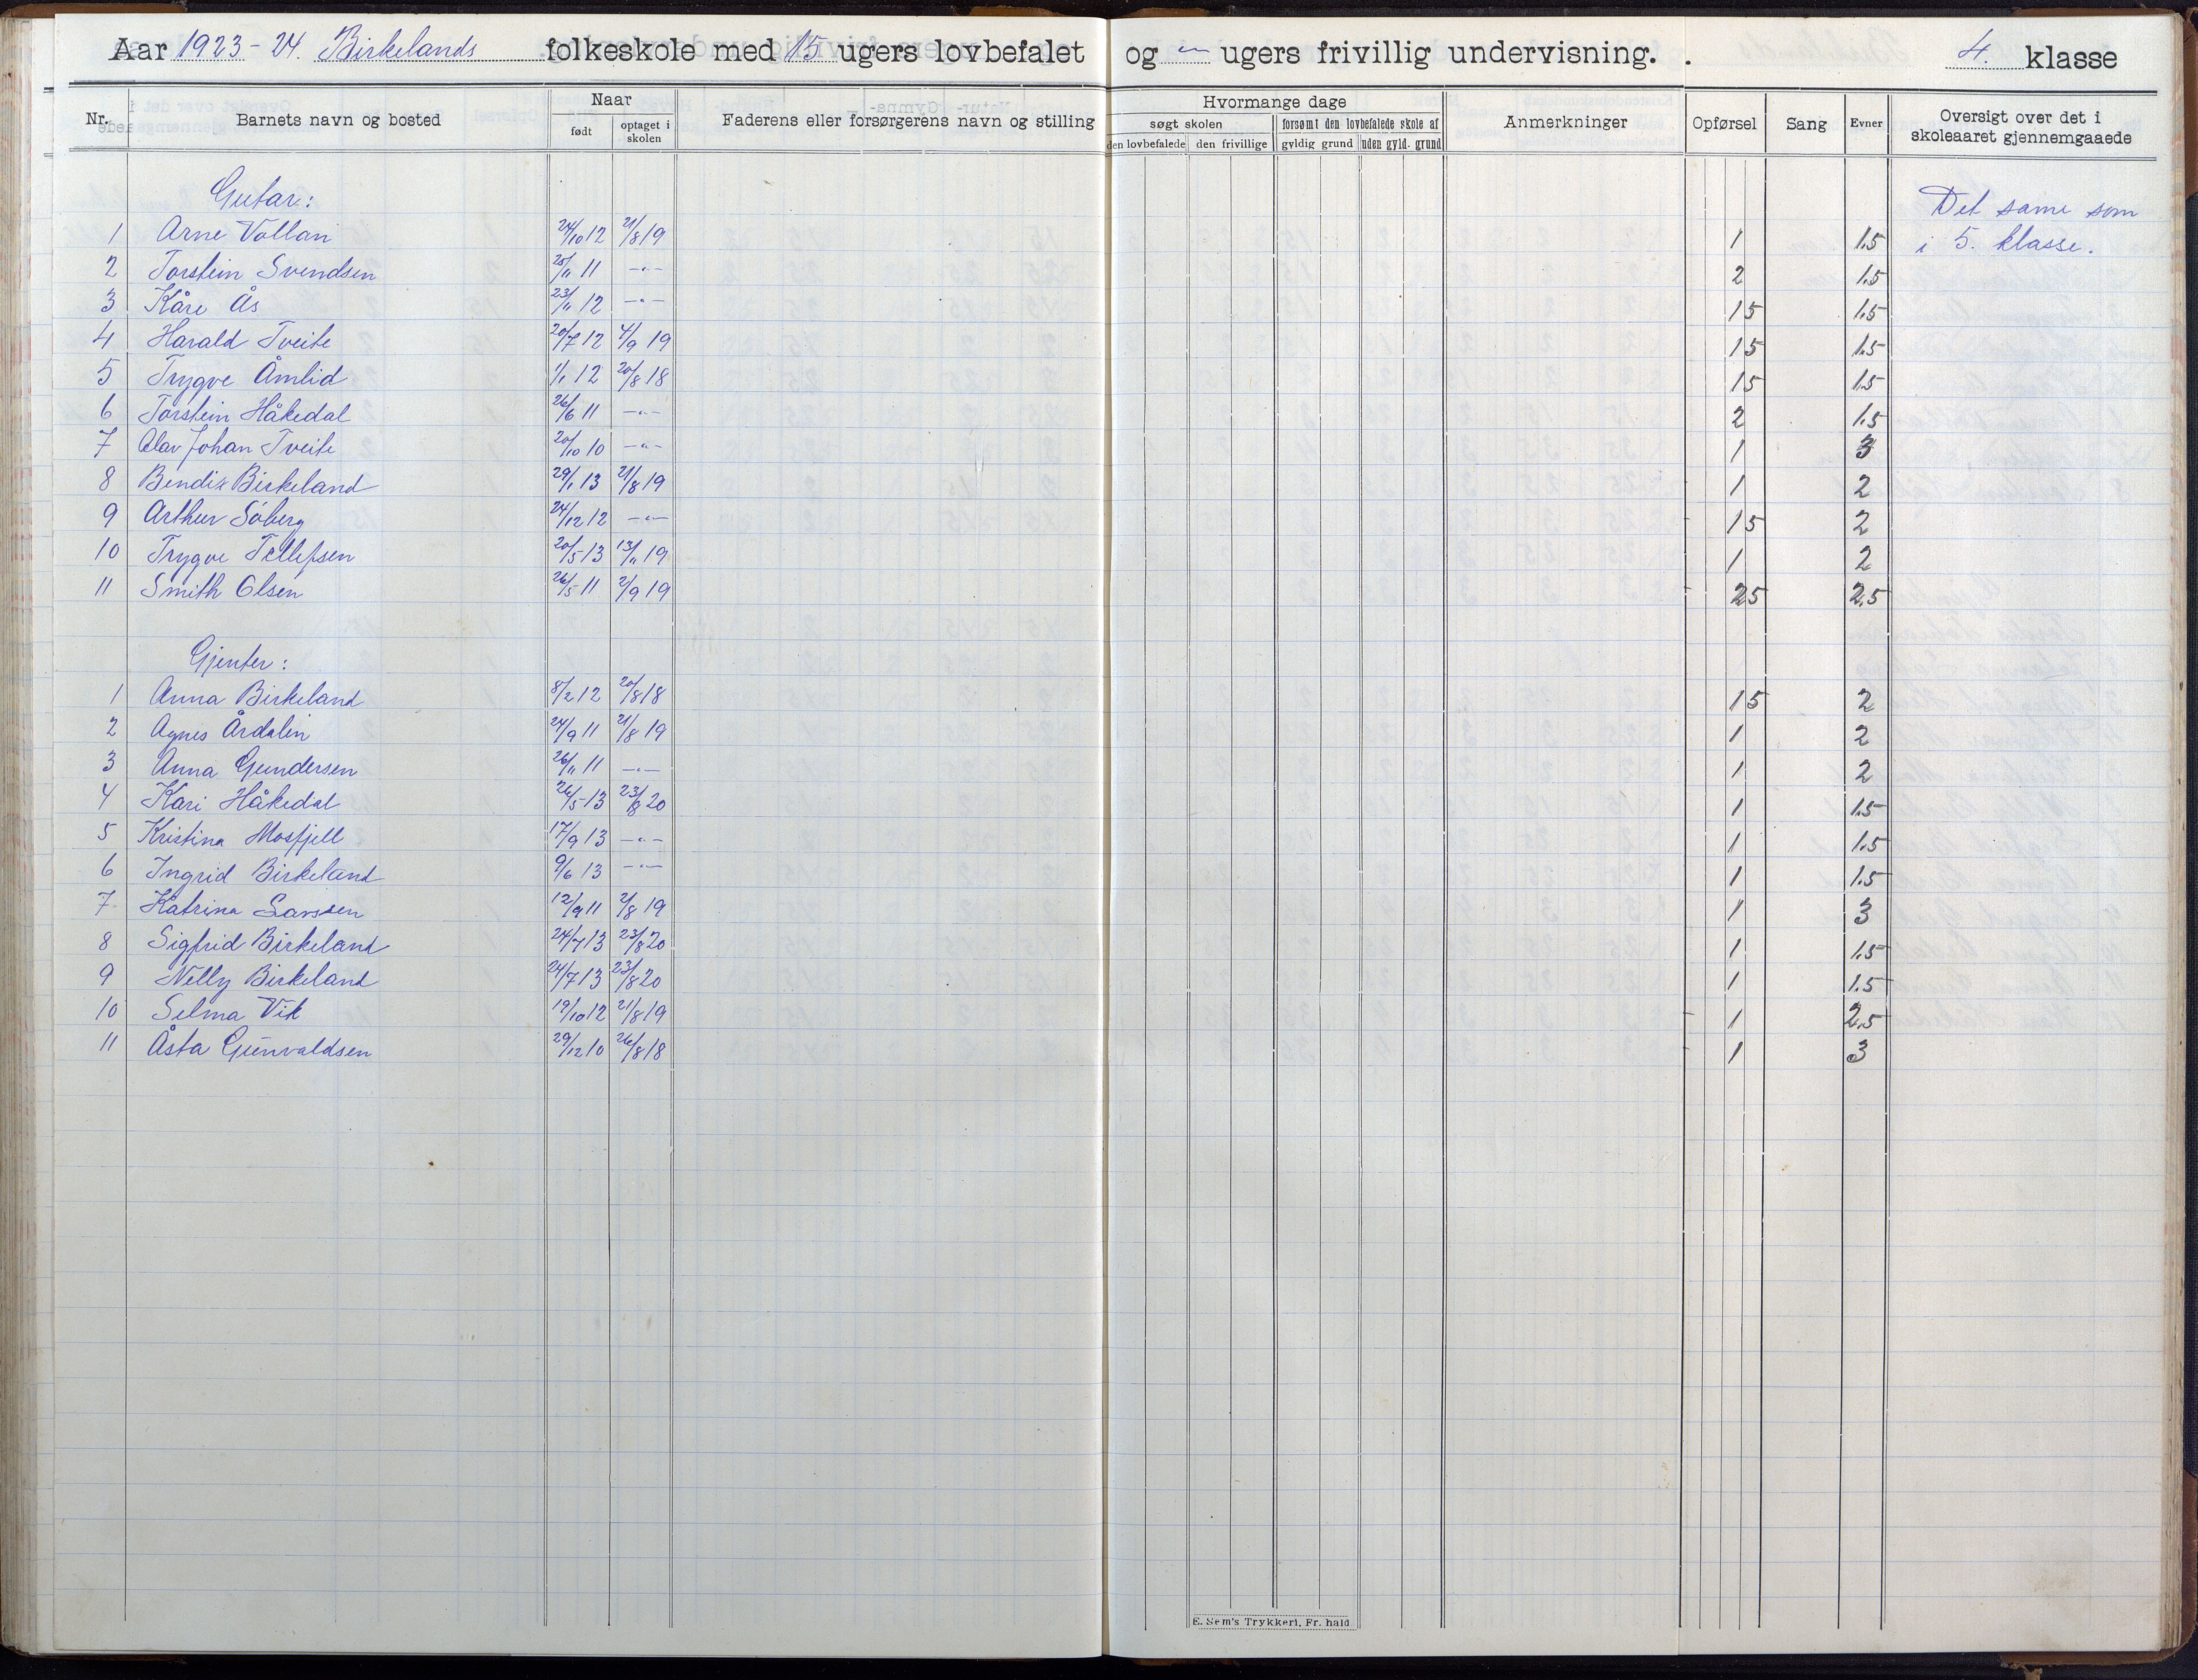 Aar 1923-24. Birkelands folkeskole med 15 ugers lovbefalet og -"- ugers frivillig undervisning. 4. klasse
Nr. Barnets navn og bosted Naar født optaget i skolen Faderens eller forsørgerens navn og stilling Hvormange dage søgt skolen den lovbefalede den frivillige forsømt den lovbefalede skole af gyldig grund uden gyld. grund Anmerkninger Opførsel Sang Evner Oversigt over det i skoleaaret gjennemgaaede
Gutar: Det same som
1 Arne Vollan 24/10 12 21/8 19 1 1.5 i 5. klasse.
2 Torstein Svendsen 25/11 11 -"- 2 1.5
3 Kåre Ås 23/11 12 -"- 15 1.5
4 Harald Tveite 20/7 12 4/9 19 15 1.5
5 Trygve Åmlid 1/1 12 20/8 18 15 1.5
6 Torstein Håkedal 26/6 11 -"- 2 1.5
7 Olav Johan Tveite 20/10 10 -"- 1 3
8 Bendix Birkeland 29/1 13 21/8 19 1 2
9 Arthur Søberg 24/12 12 -"- 15 2
10 Trygve Tellefsen 20/5 13 13/11 19 1 2
11 Smith Olsen 26/5 11 2/9 19 25 2.5
Gjenter:
1 Anna Birkeland 8/2 12 20/8 18 15 2
2 Agnes Årdalin 24/9 11 21/8 19 1 2
3 Anna Gundersen 26/11 11 -"- 1 2
4 Kari Håkedal 26/5 13 23/8 20 1 1.5
5 Kristina Mosfjell 17/9 13 -"- 1 1.5
6 Ingrid Birkeland 9/6 13 -"- 1 1.5
7 Katrina Larssen 12/9 11 2/8 19 1 3
8 Sigfrid Birkeland 24/7 13 23/8 20 1 1.5
9 Nelly Birkeland 24/7 13 23/8 20 1 1.5
10 Selma Vik 19/10 12 21/8 19 1 2.5
11 Åsta Gunvaldsen 29/12 10 26/8 18 1 3
E. Sem's Trykkeri, Fr. hald